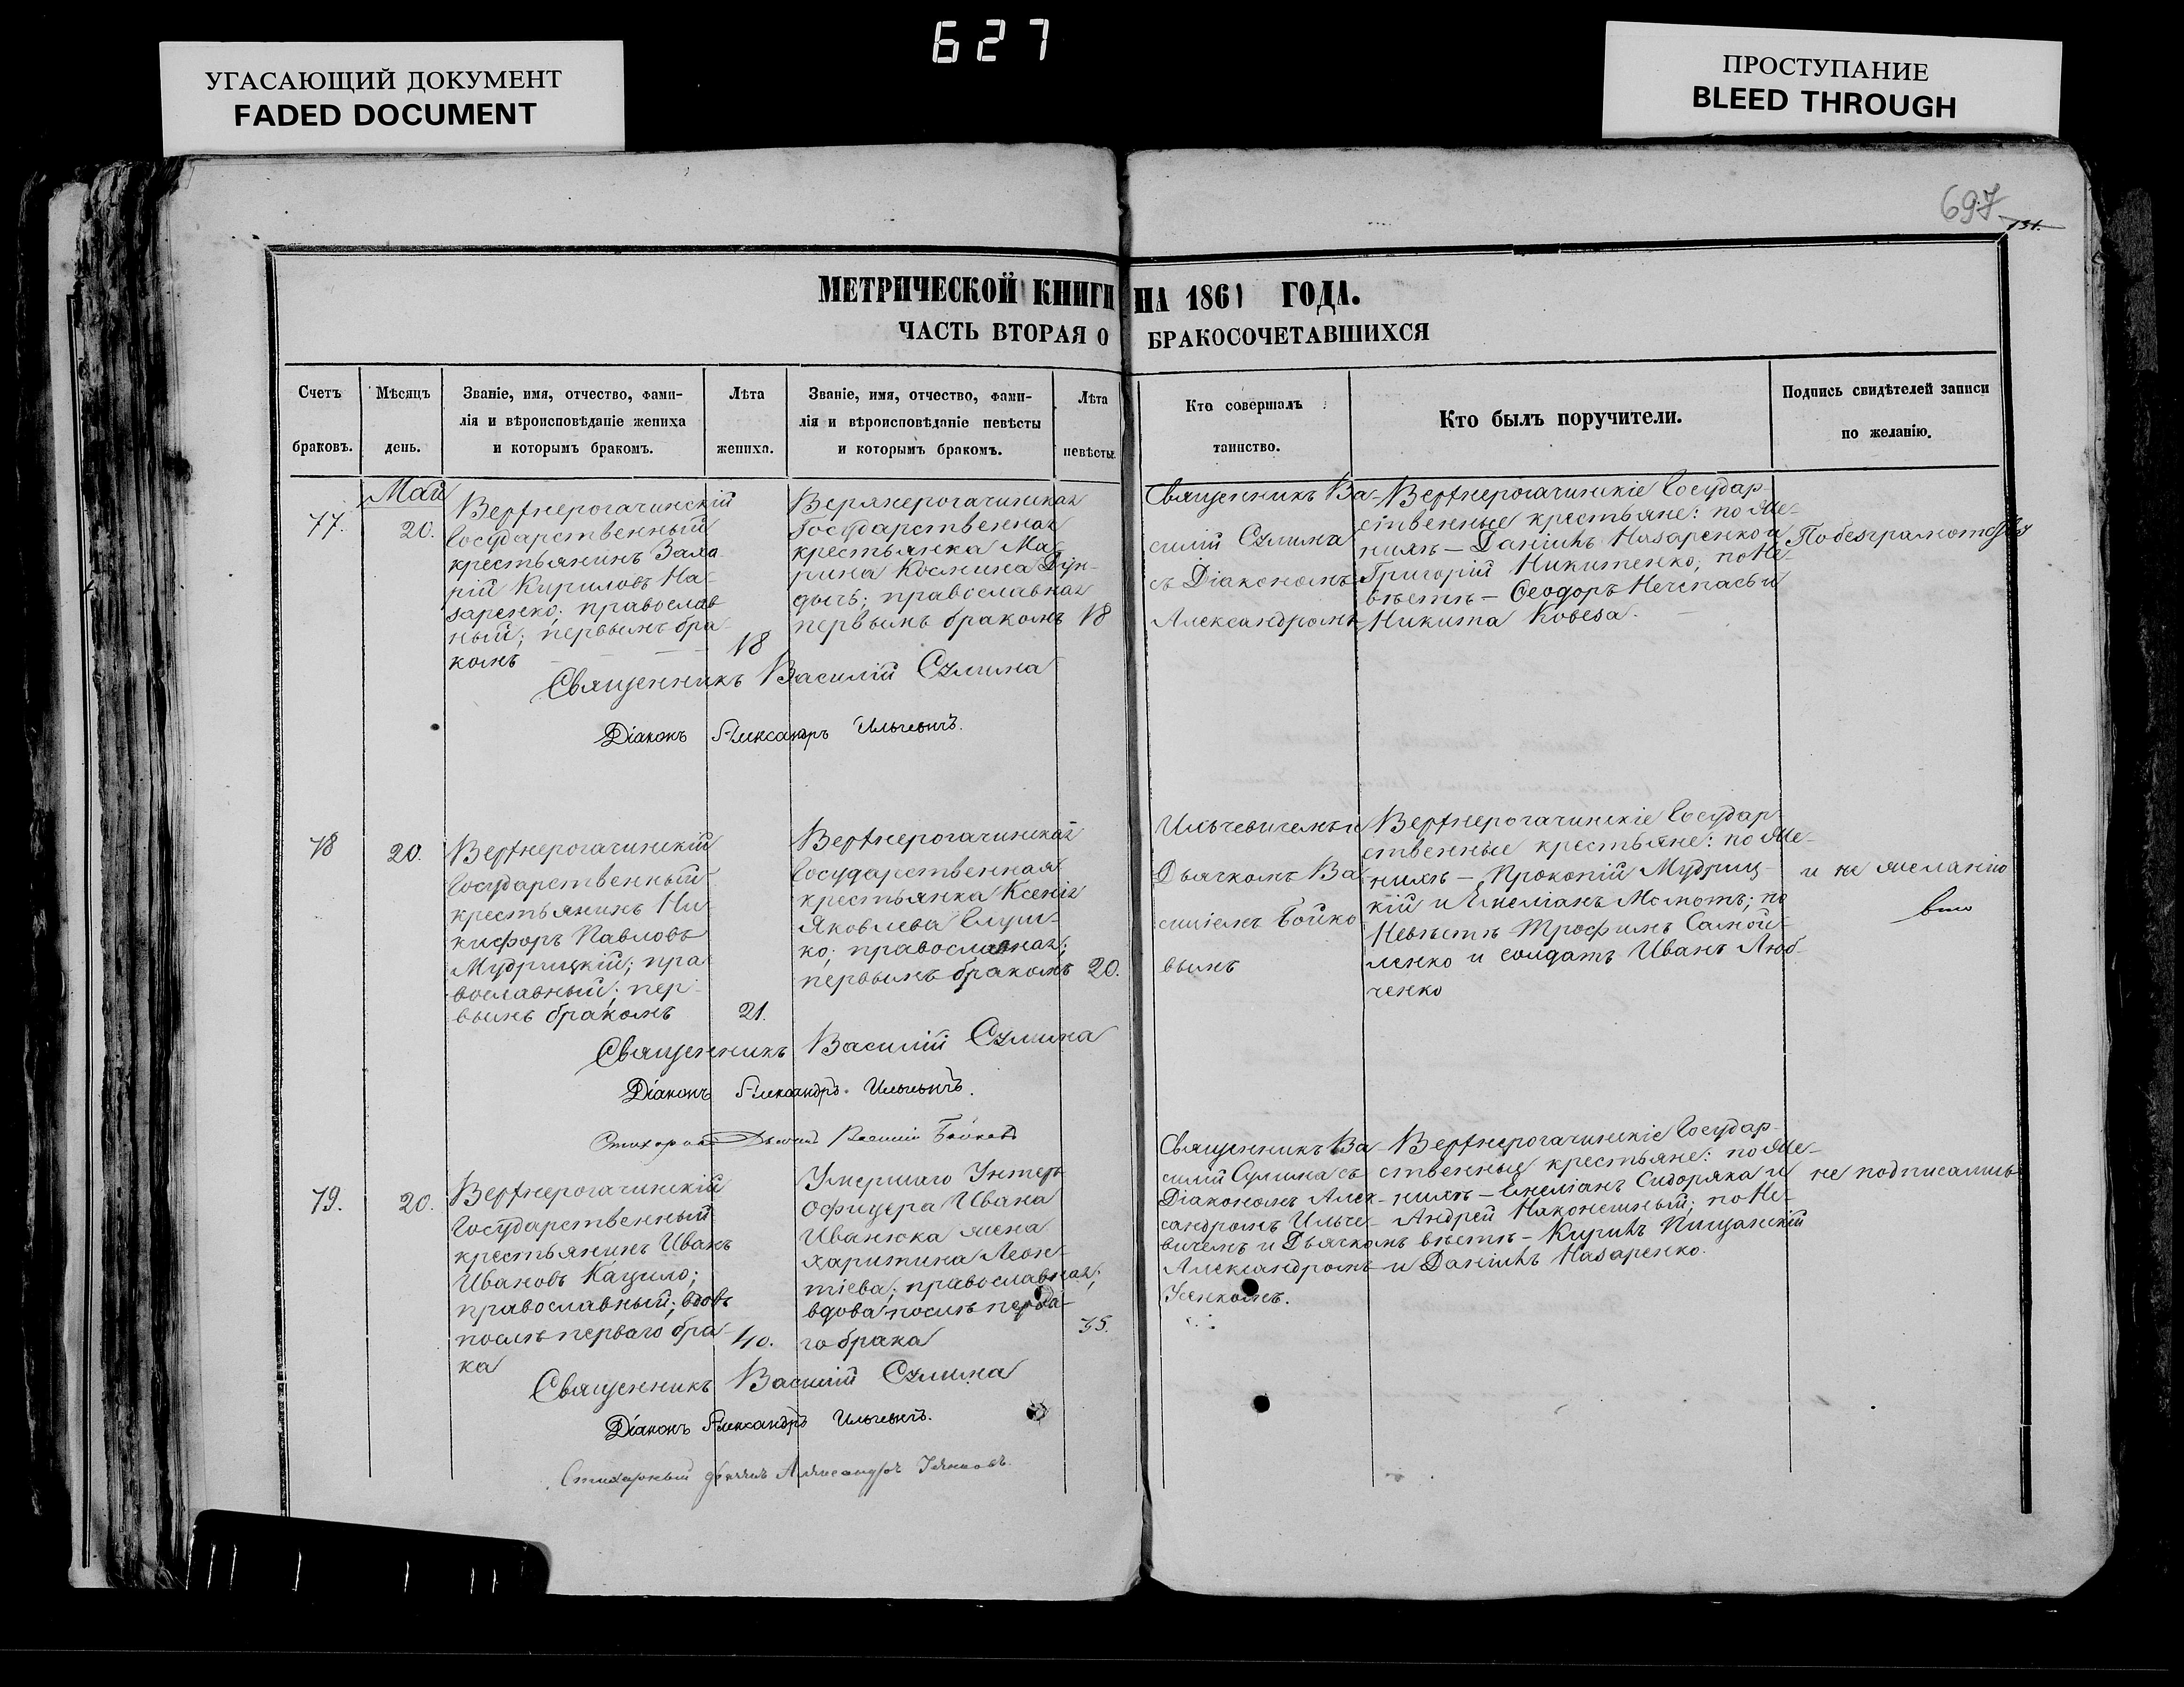 627
УГАСАЮЩИЙ ДОКУМЕНТ
FADED DOCUMENT
ПРОСТУПАНИЕ
BLEED THROUGH
697
131.
МЕТРИЧЕСКОЙ КНИГИ НА 1861 ГОДА.
ЧАСТЬ ВТОРАЯ О БРАКОСОЧЕТАВШИХСЯ
Счетъ
браковъ.
Мѣсяцъ
день.
Званіе, имя, отчество, фами-
лія и вѣроисповѣданіе жениха
и которымъ бракомъ.
Лѣта
жениха.
Званіе, имя, отчество, фами-
лія и вѣроисповѣданіе невѣсты
и которымъ бракомъ.
Лѣта
невѣсты.
Кто совершалъ
таинство.
Кто былъ поручители.
Подпись свидѣтелей записи
по желанію.
77.
Май
20.
Верхнерогачинскій
Государственный
крестьянинъ Заха
рій Кириловъ На-
заренко; православ
ный; первымъ бра
комъ
18
Верхнерогачинская
Государственная
крестьянка Ма
рина Космина Дун-
дычь; православная
первымъ бракомъ
18
Священникъ Ва-
силій Сулима
съ Діакономъ
Александромъ
Верхнерогачинскіе Государ
ственные крестьяне: по Же-
нихѣ — Даніилъ Назаренко и
Григорій Никитенко; по Не
вѣстѣ — Ѳеодоръ Нечепасъ и
Никита Ковеза.
По безграмотству
Священникъ Василій Сулима
Діаконъ Александръ Ильчевичъ.
78
20.
Верхнерогачинскій
Государственный
крестьянинъ Ни
кифоръ Павловъ
Мудрицкій; пра
вославный; пер-
вымъ бракомъ
21.
Верхнерогачинская
Государственная
крестьянка Ксенія
Яковлева
ко; православная;
первымъ бракомъ
20.
Ильчевичемъ и
Дьячкомъ Ва
силіемъ Бойко
вымъ
Верхнерогачинскіе Государ
ственные крестьяне: по Же-
нихѣ — Прокопій Мудриц-
кій и Емеліанъ Момотъ; по
Невѣстѣ Трофимъ Самой-
ленко и солдатъ Иванъ Люб-
ченко
и не желанію
Священникъ Василій Сулима
Діаконъ Александръ Ильчевичъ.
Стихарный Дьячекъ Василій Бойковъ
79.
20.
Верхнерогачинскій
Государственный
крестьянинъ Иванъ
Ивановъ Кацило;
православный; вдовъ
послѣ перваго бра
ка
40.
Умершаго Унтеръ
Офицера Ивана
Иванюка жена
Харитина Леон-
тіева; православная;
вдова послѣ перва-
го брака
35.
Священникъ Ва
силій Сулима съ
Діакономъ Алек-
сандромъ Ильче-
вичемъ и Дьячкомъ
Александромъ
Верхнерогачинскіе Государ-
ственные крестьяне: по Же-
нихѣ — Емеліанъ Сидоряка и
Андрей Наконешный; по Не-
вѣстѣ — Кирилъ Пищанскій
и Даніилъ Назаренко.
не подписались
Священникъ Василій Сулима
Діаконъ Александръ Ильчевичъ.
Стихарный дьячекъ Александръ